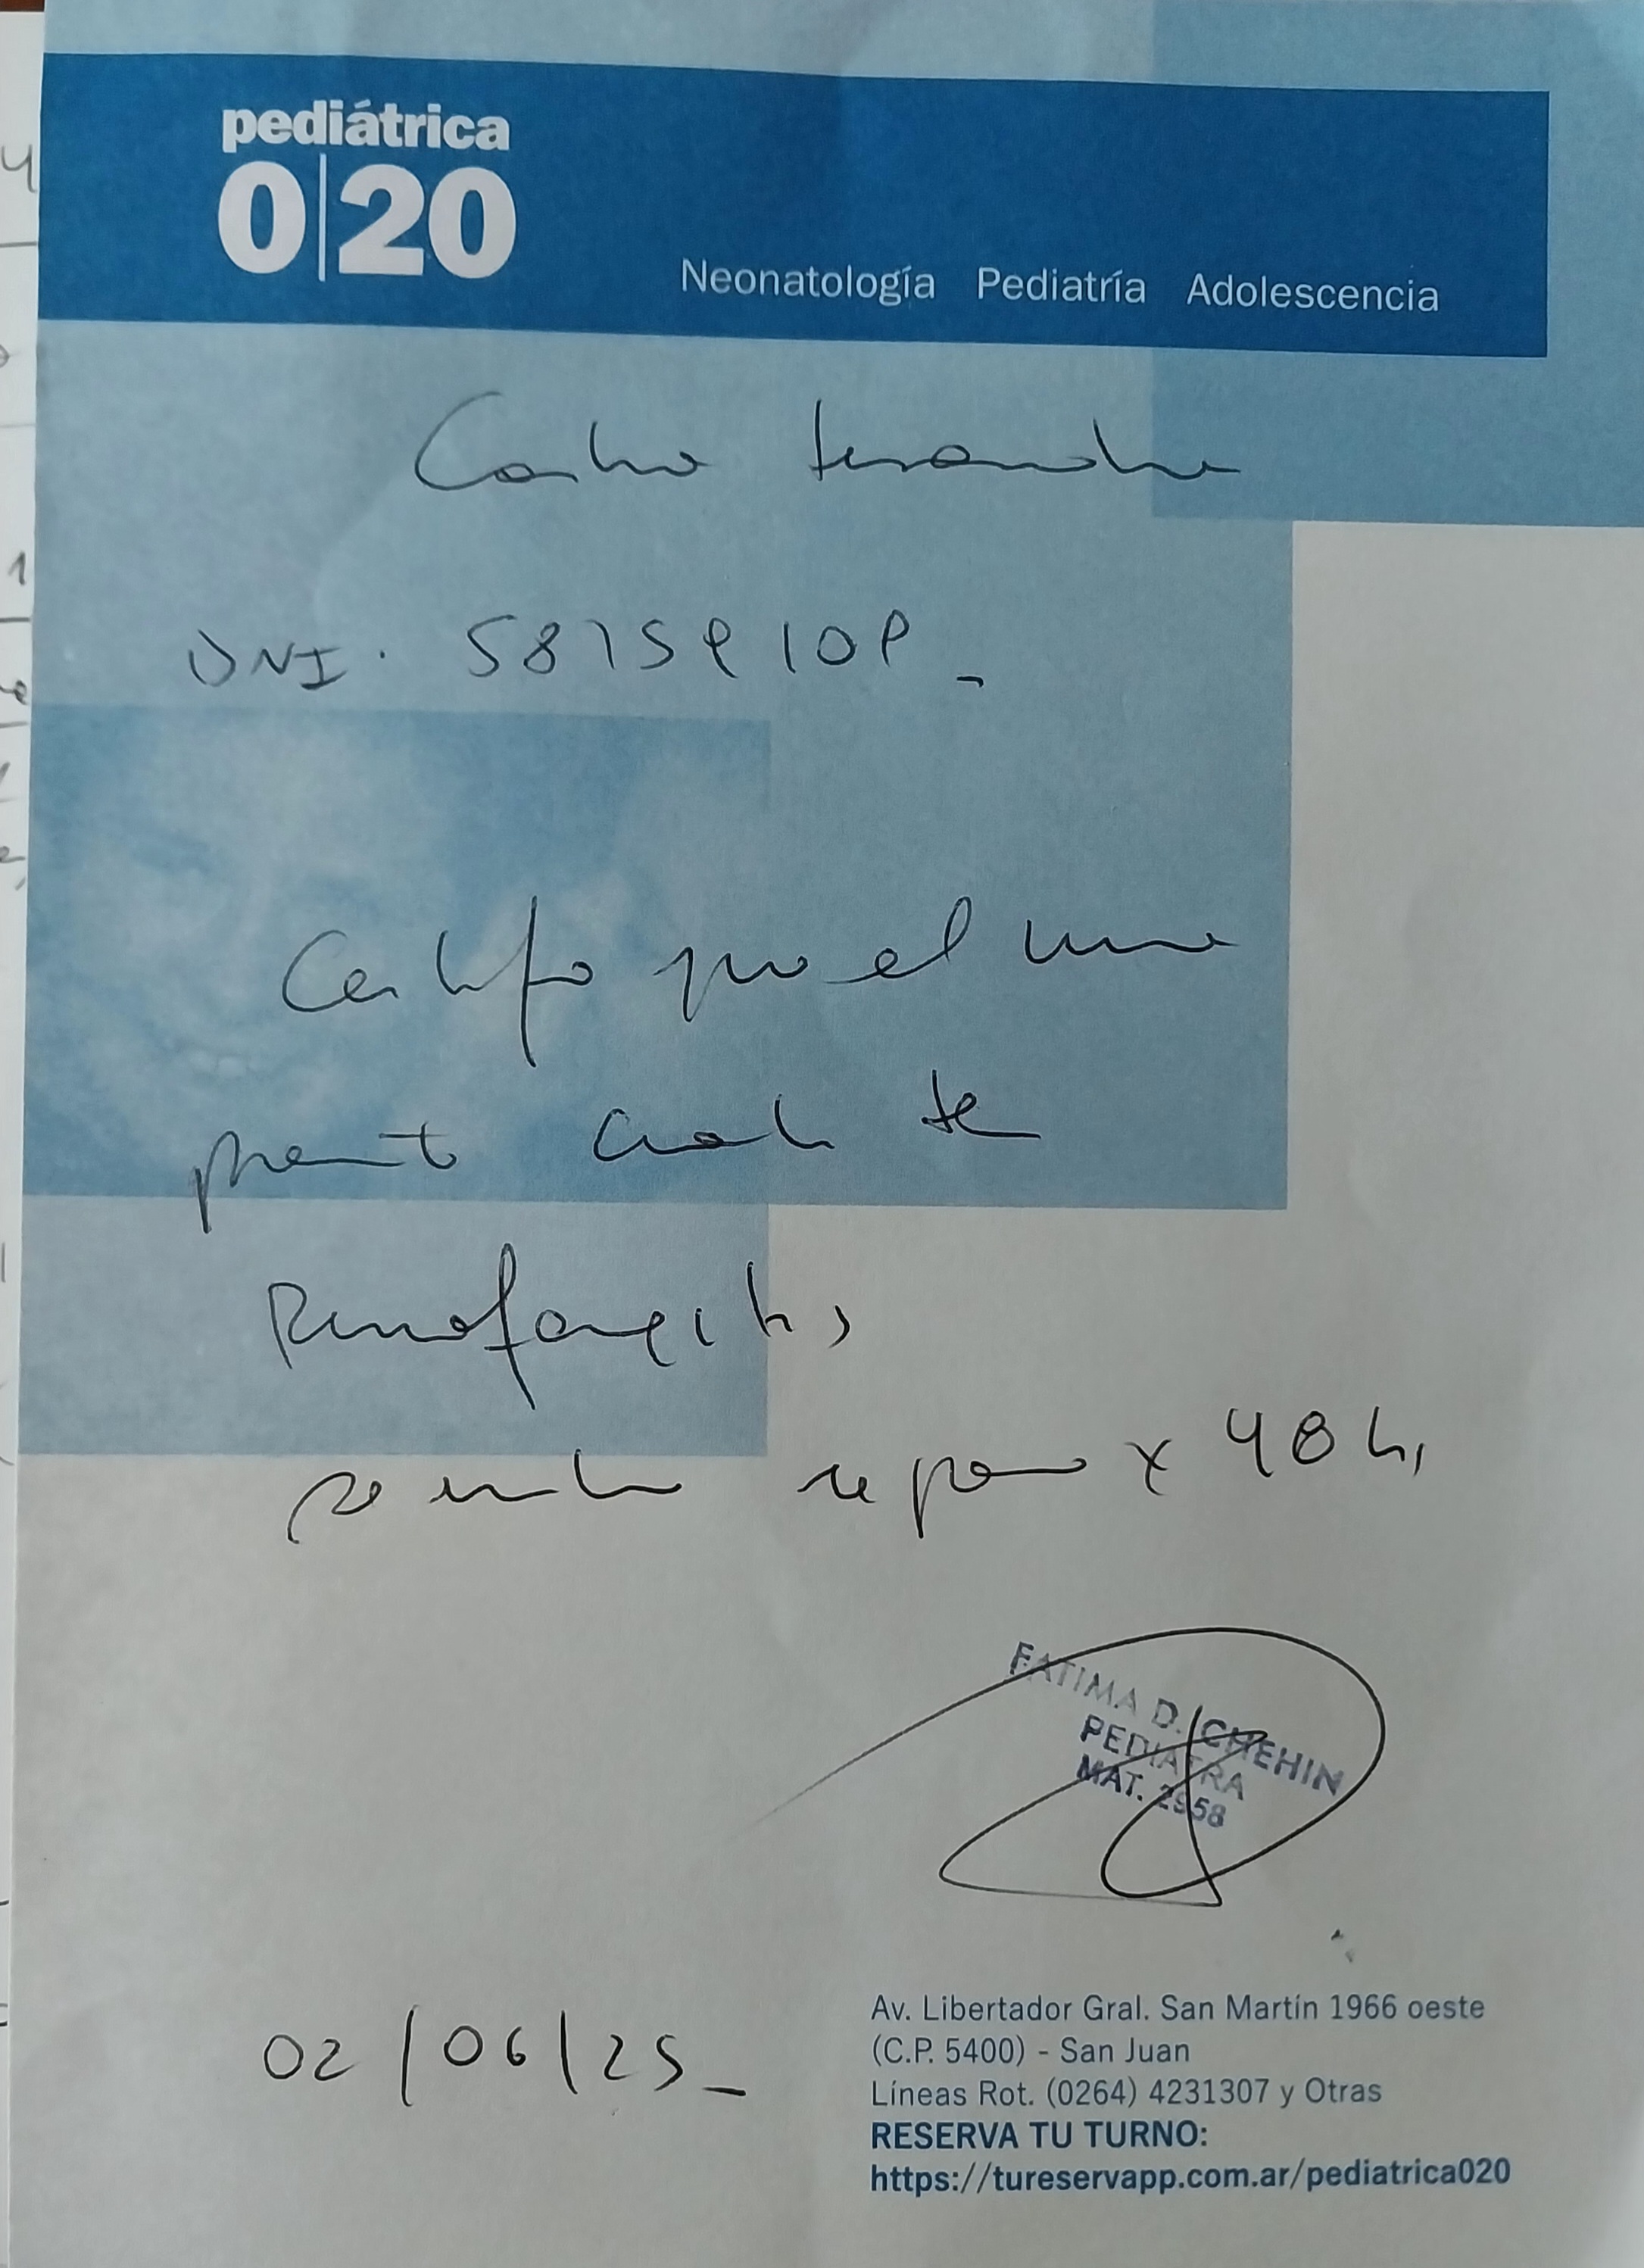 pediátrica
0|20
Neonatología Pediatría Adolescencia
Castro
DNI. 58759109_
Certifico que el niño
presento cuadro de
Rinofaringitis
se indica reposo x 48 hs
FATIMA D. CHEHIN
PEDIATRA
MAT. 2958
02/06/25_
Av. Libertador Gral. San Martín 1966 oeste
(C.P. 5400) - San Juan
Líneas Rot. (0264) 4231307 y Otras
RESERVA TU TURNO:
https://tureservapp.com.ar/pediatrica020